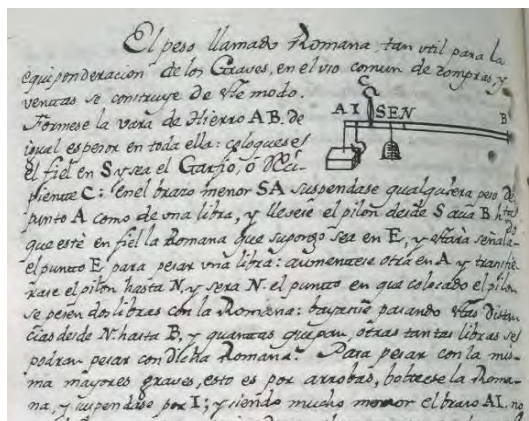 El peso llamado Romana, tan util para la
equiponderacion de los Graves, en el vso comun de compras, y
ventas se construye de este modo.
Formese la vara de Hierro AB. de
igual espesor en toda ella: coloquese
el fiel en S y sea el Garfio, ó
piente C: en el brazo menor SA suspendase qualquiera peso
punto A como de vna libra, y llevese el pilon desde S acia B
que estè en fiel la Romana que supongo sea en E, y estarà señala
el punto E, para pesar vna libra: aumentese otra en A y transfie
rase el pilon hasta N, y sera N. el punto en que colocado el pilon
se pesen dos libras con la Romana: pasando distan
cias desde N. hasta B, y quantas quepan, otras tantas libras se
podran pesar con dicha Romana. Para pesar con la mis
ma mayores graves, esto es por arrobas, la Roma
na, y suspendase por I; y siendo mucho menor el brazo AI, no
C
A I S E N B